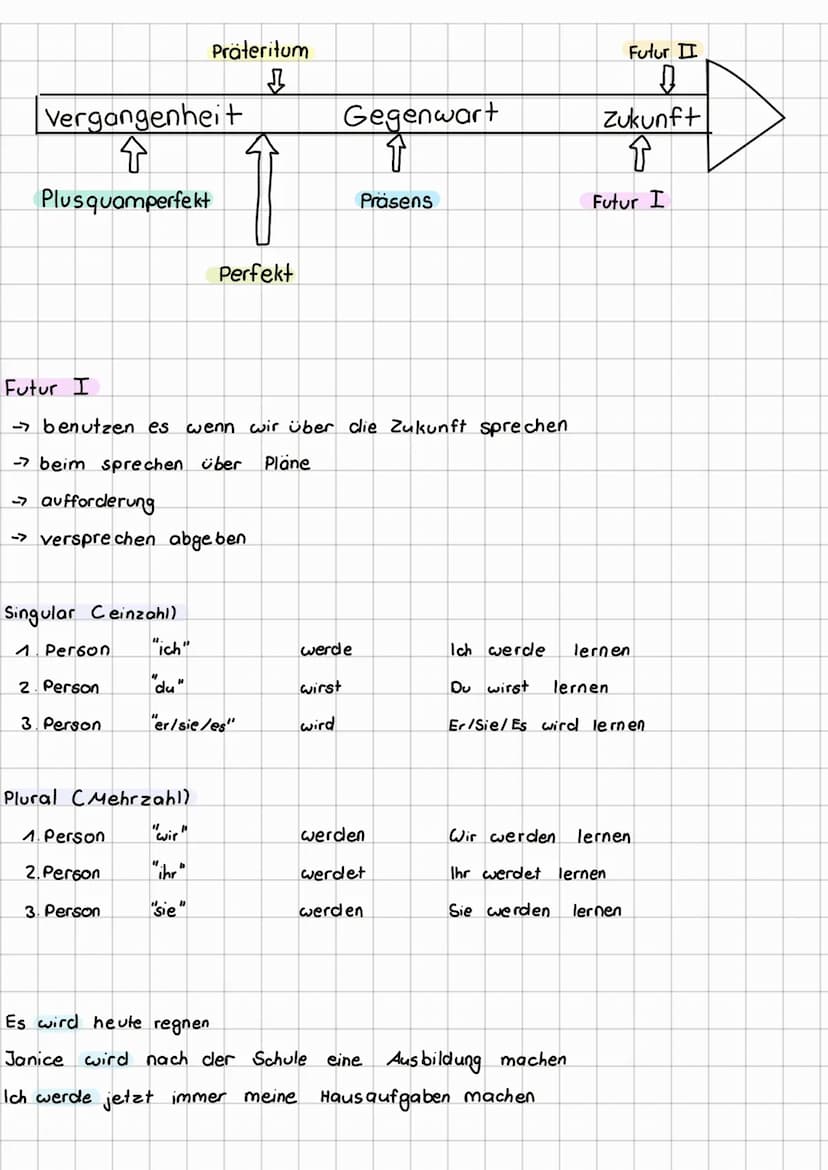 Präteritum Futur II
Vergangenheit Gegenwart Zukunft
Plusquamperfekt Präsens Futur I
Perfekt
Futur I
→ benutzen es wenn wir über die Zukunft sprechen
→ beim sprechen über Pläne
→ aufforderung
→ versprechen abgeben
Singular (einzahl)
1. Person "ich" werde Ich werde lernen
2. Person "du" wirst Du wirst lernen
3. Person "er/sie/es" wird Er/Sie/Es wird lernen
Plural (Mehrzahl)
1. Person "wir" werden Wir werden lernen
2. Person "ihr" werdet Ihr werdet lernen
3. Person "sie" werden Sie werden lernen
Es wird heute regnen
Janice wird nach der Schule eine Ausbildung machen
Ich werde jetzt immer meine Hausaufgaben machen